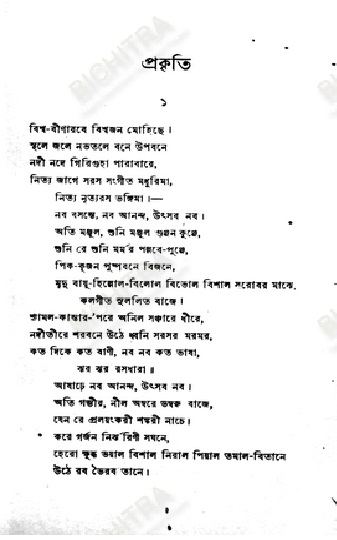 প্রকৃতি
১
বিশ্ব-বীণারবে বিশ্বজন মোহিছে।
স্থলে জলে নভতলে বনে উপবনে
নদী নদে গিরিগুহা পারাবারে,
নিত্য জাগে সরস সংগীত মধুরিমা,
নিত্য নৃত্যরস ভঙ্গিমা।—
নব বসন্তে, নব আনন্দ, উৎসব নব।
অতি মঞ্জুল, শুনি মঞ্জুল গুঞ্জন কুঞ্জে,
শুনি রে শুনি মর্মর পল্লবে-পুঞ্জে,
পিক-কূজন পুষ্পবনে বিজনে,
মৃদু বায়ু-হিল্লোল-বিলোল বিভোল বিশাল সরোবর মাঝে.
কলগীত সুললিত বাজে।
শ্যামল-কান্তার-'পরে অনিল সঞ্চারে ধীরে,
নদীতীরে শরবনে উঠে ধ্বনি সরসর মরমর,
কত দিকে কত বাণী, নব নব কত ভাষা,
ঝর ঝর রসধারা॥
আষাঢ়ে নব আনন্দ, উৎসব নব।
অতি গম্ভীর, নীল অম্বরে ডম্বরু বাজে,
যেন রে প্রলয়ংকরী শঙ্করী নাচে।
করে গর্জন নির্ঝরিণী সঘনে,
হেরো ক্ষুব্ধ ভয়াল বিশাল নিরাল পিয়াল তমাল-বিতানে
উঠে রব ভৈরব তানে।